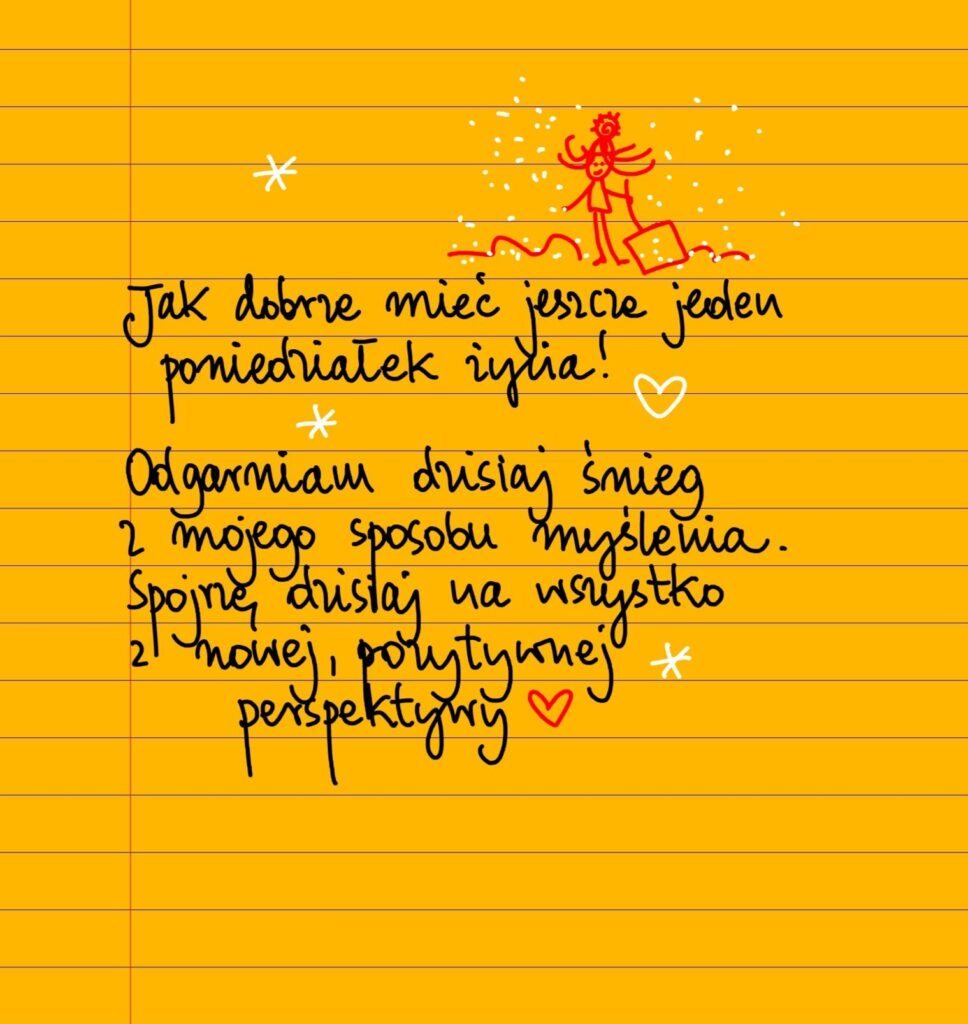 Jak dobrze mieć jeszcze jeden
poniedziałek życia!
Odgarniam dzisiaj śnieg
z mojego sposobu myślenia.
Spojrzę dzisiaj na wszystko
z nowej, pozytywnej
perspektywy